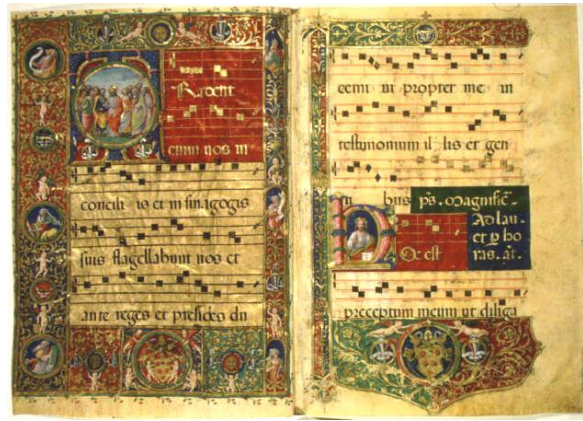 Radent
enim uos in
concili is et in sinagogis
suis flagellabunt uos et
ante reges et presides du
cemi ni propter me in
testimonium il lis et gen
ti bus ps. Magnific.
Ad lau.
et p ho
ras. añ.
H Oc est
preceptum meum ut diliga